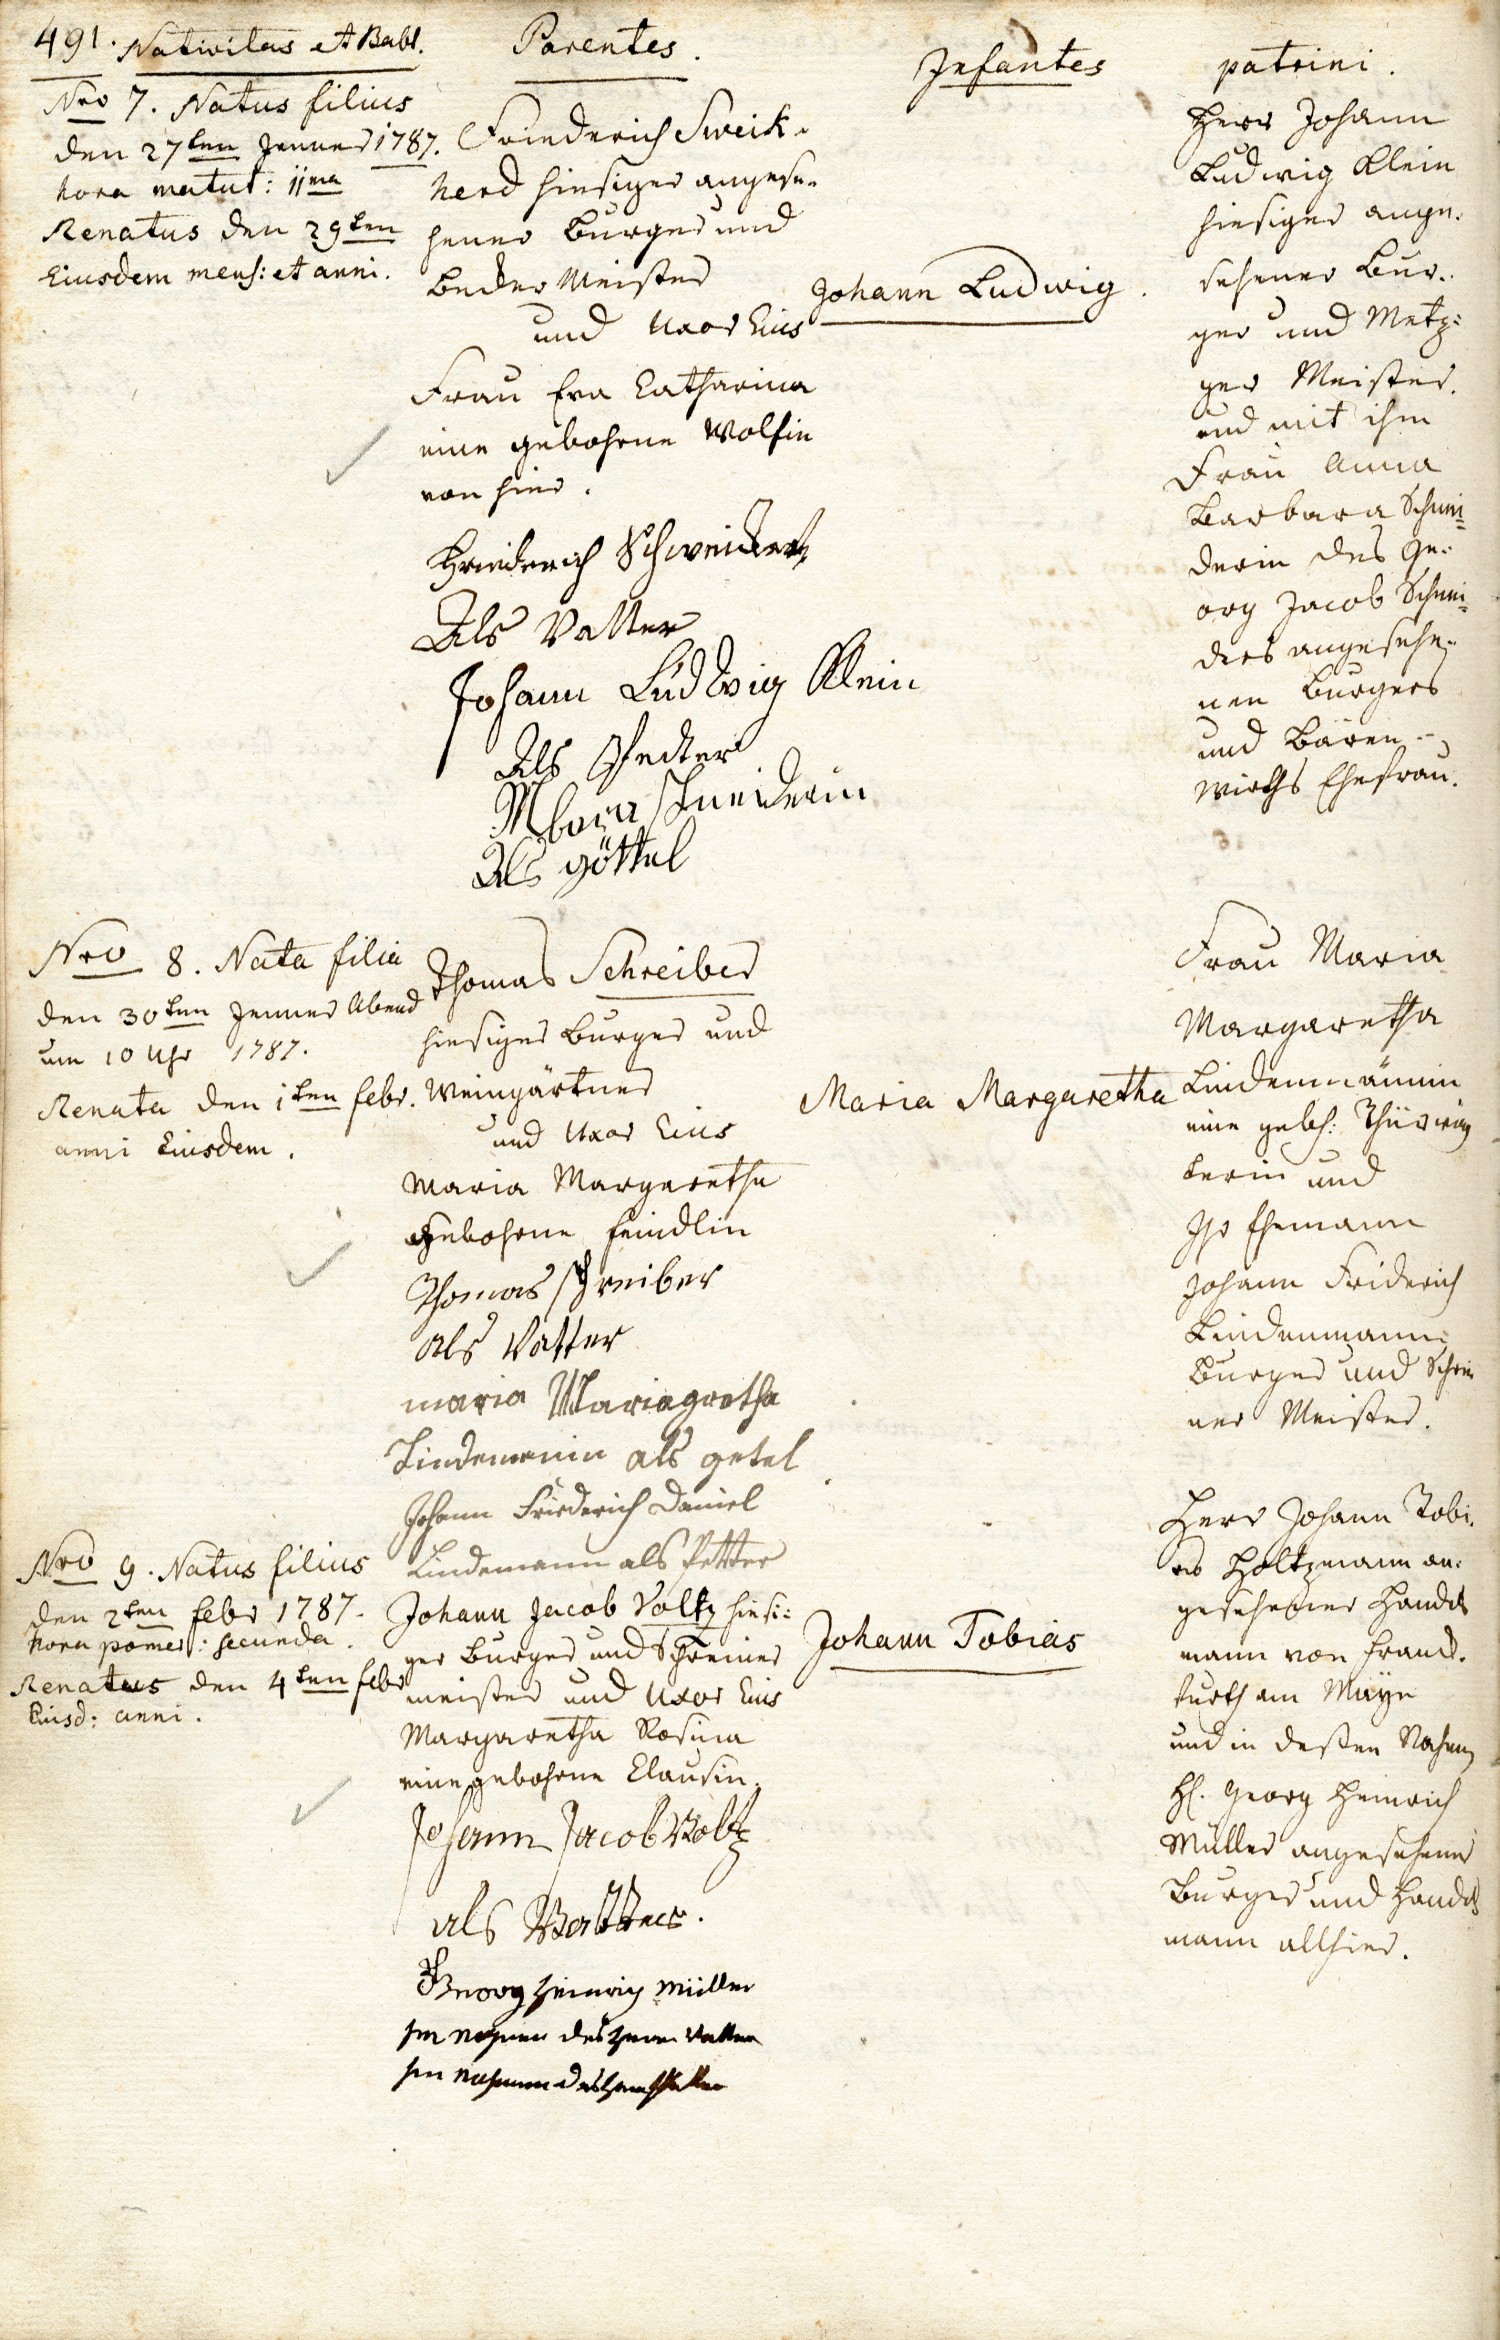 491. Nativitas et Babt.
Parentes.
Infantes
patrini.
Nro 7. Natus filius
den 27ten Jenner 1787.
hora matut: 11ma
Renatus den 29ten
Eiusdem mens: et anni.
Friederich Sweik-
herd hiesiger angese-
hener Burger und
Becker Meister
und Uxor Eius
Frau Eva Catharina
eine gebohrne Wolfin
von hier.
Friederich Schweickert
Als Vatter
Johann Ludwig Klein
Als Pfetter
M bara Schneiderin
Als göttel
Johann Ludwig.
Herr Johann
Ludwig Klein
hiesiger ange-
sehener Bur-
ger und Metz-
ger Meister.
und mit ihm
Frau Anna
Barbara Schnei-
derin des Ge-
org Jacob Schnei-
ders angesehe-
nen Burgers
und Bären-
wirths Ehefrau.
Nro 8. Nata filia
den 30ten Jenner Abend
um 10 Uhr 1787.
Renata den 1ten febr.
anni Eiusdem.
Thomas Schreiber
hiesiger Burger und
Weingärtner
und Uxor Eius
Maria Margaretha
gebohrne feindlin
Thomas schreiber
als Vatter
maria Mariagretha
Lindemenin als getel
Johann Friederich Daniel
Lindemann als Petter
Maria Margaretha
Frau Maria
Margaretha
Lindemännin
eine geb:
und
Ihr Ehemann
Johann Friderich
Lindenmann
Burger und Schrei
ner Meister.
Nro 9. Natus filius
den 2ten febr 1787.
hora pomer: secunda.
Renatus den 4ten febr
Eiusd: anni.
Johann Jacob Voltz hiesi-
ger Burger und Schreiner
meister und Uxor Eius
Margaretha Rosina
eine gebohrne Clausin.
Johann Jacob Voltz
als Vatter.
Georg Heinrich Müller
im namen des Herrn
im nahmen des
Johann Tobias
Herr Johann Tobi-
as Holtzmann an-
gesehener Handels
mann von Franck-
furth am Mayn
und in deßen Nahmen
H. Georg Heinrich
Müller angesehener
Burger und Handels
mann allhier.